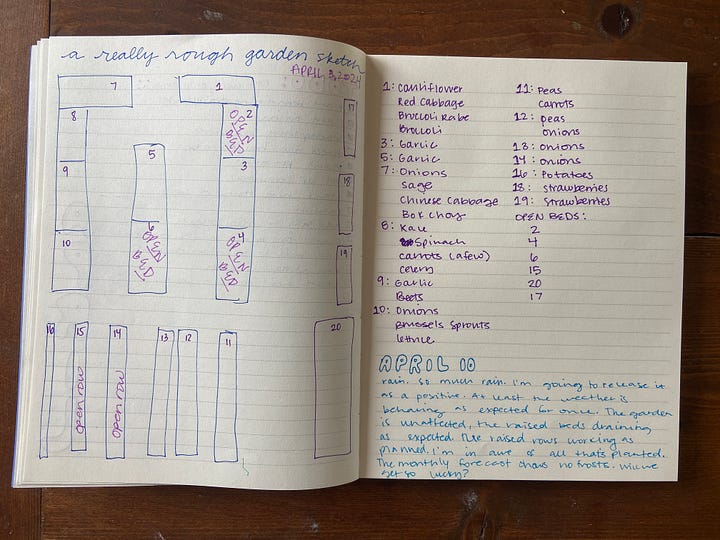 a really rough garden sketch
APRIL 3, 2024
7
1
8
2
OPEN BED
17
5
3
9
18
6
OPEN BED
4
OPEN BED
10
19
16
15
open row
14
open row
13
12
11
20
1: Cauliflower
Red Cabbage
Broccoli Rabe
Broccoli
3: Garlic
5: Garlic
7: Onions
Sage
Chinese Cabbage
Bok Choy
8: Kale
Spinach
carrots (a few)
celery
9: Garlic
Beets
10: Onions
Brussels Sprouts
lettuce
11: Peas
carrots
12: peas
onions
13: onions
14: onions
16: Potatoes
18: strawberries
19: Strawberries
OPEN BEDS:
2
4
6
15
20
17
APRIL 10
rain. so much rain. I'm going to release it
as a positive. At least the weather is
behaving as expected for once. The garden
is unaffected, the raised beds draining
as expected. The raised rows working as
planned. I'm in awe of all that's planted.
The monthly forecast shows no frosts. Will we
get so lucky?